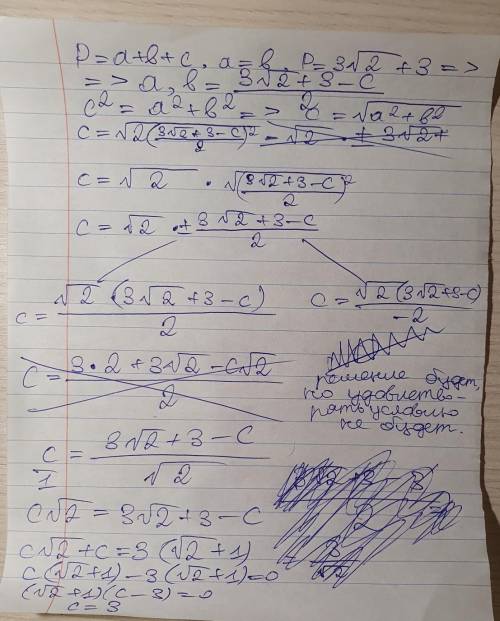 P = a+b+c, a=b, P=3√2+3 =>
=> a, b = (3√2+3-c)/2
c² = a²+b² => c = √(a²+b²)
c = √(2((3√2+3-c)/2)²
c = √2 · √((3√2+3-c)/2)²
c = √2 · ± (3√2+3-c)/2
c = √2 · (3√2+3-c)/2
c = √2(3√2+3-c)/-2
c = (3·2+3√2-c√2)/2
решение будет,
но удовлетво-
рять условию
не будет.
c/1 = (3√2+3-c)/√2
c√2 = 3√2+3-c
c√2+c=3(√2+1)
c(√2+1)-3(√2+1)=0
(√2+1)(c-3)=0
c=3